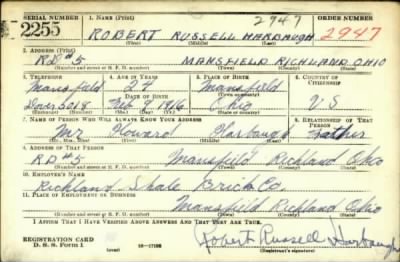 SERIAL NUMBER 1. NAME (Print) 2947
2255 ROBERT RUSSELL HARBAUGH 2947
(First) (Middle) (Last)
2. ADDRESS (Print)
RD#5 MANSFIELD RICHLAND OHIO
(Number and street or R. F. D. number) (Town) (County) (State)
3. TELEPHONE 4. AGE IN YEARS 5. PLACE OF BIRTH 6. COUNTRY OF CITIZENSHIP
Mansfield 24 Mansfield
DATE OF BIRTH
5018 Feb 9 1916 Ohio U.S
(Exchange) (Number) (Mo.) (Day) (Yr.) (Town or county) (State or country)
7. NAME OF PERSON WHO WILL ALWAYS KNOW YOUR ADDRESS 8. RELATIONSHIP OF THAT PERSON
Mr Howard Harbaugh Father
(Mr., Mrs., Miss) (First) (Middle) (Last)
9. ADDRESS OF THAT PERSON
RD#5 Mansfield Richland Ohio
(Number and street or R. F. D. number) (Town) (County) (State)
10. EMPLOYER'S NAME
Richland Shale Brick Co.
11. PLACE OF EMPLOYMENT OR BUSINESS
Mansfield Richland Ohio
(Number and street or R. F. D. number) (Town) (County) (State)
I AFFIRM THAT I HAVE VERIFIED ABOVE ANSWERS AND THAT THEY ARE TRUE.
REGISTRATION CARD
D. S. S. Form 1 (over) Robert Russell Harbaugh
(Registrant's signature)